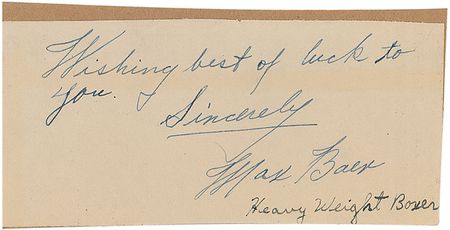 Wishing best of luck to
you.
Sincerely
Max Baer
Heavy Weight Boxer